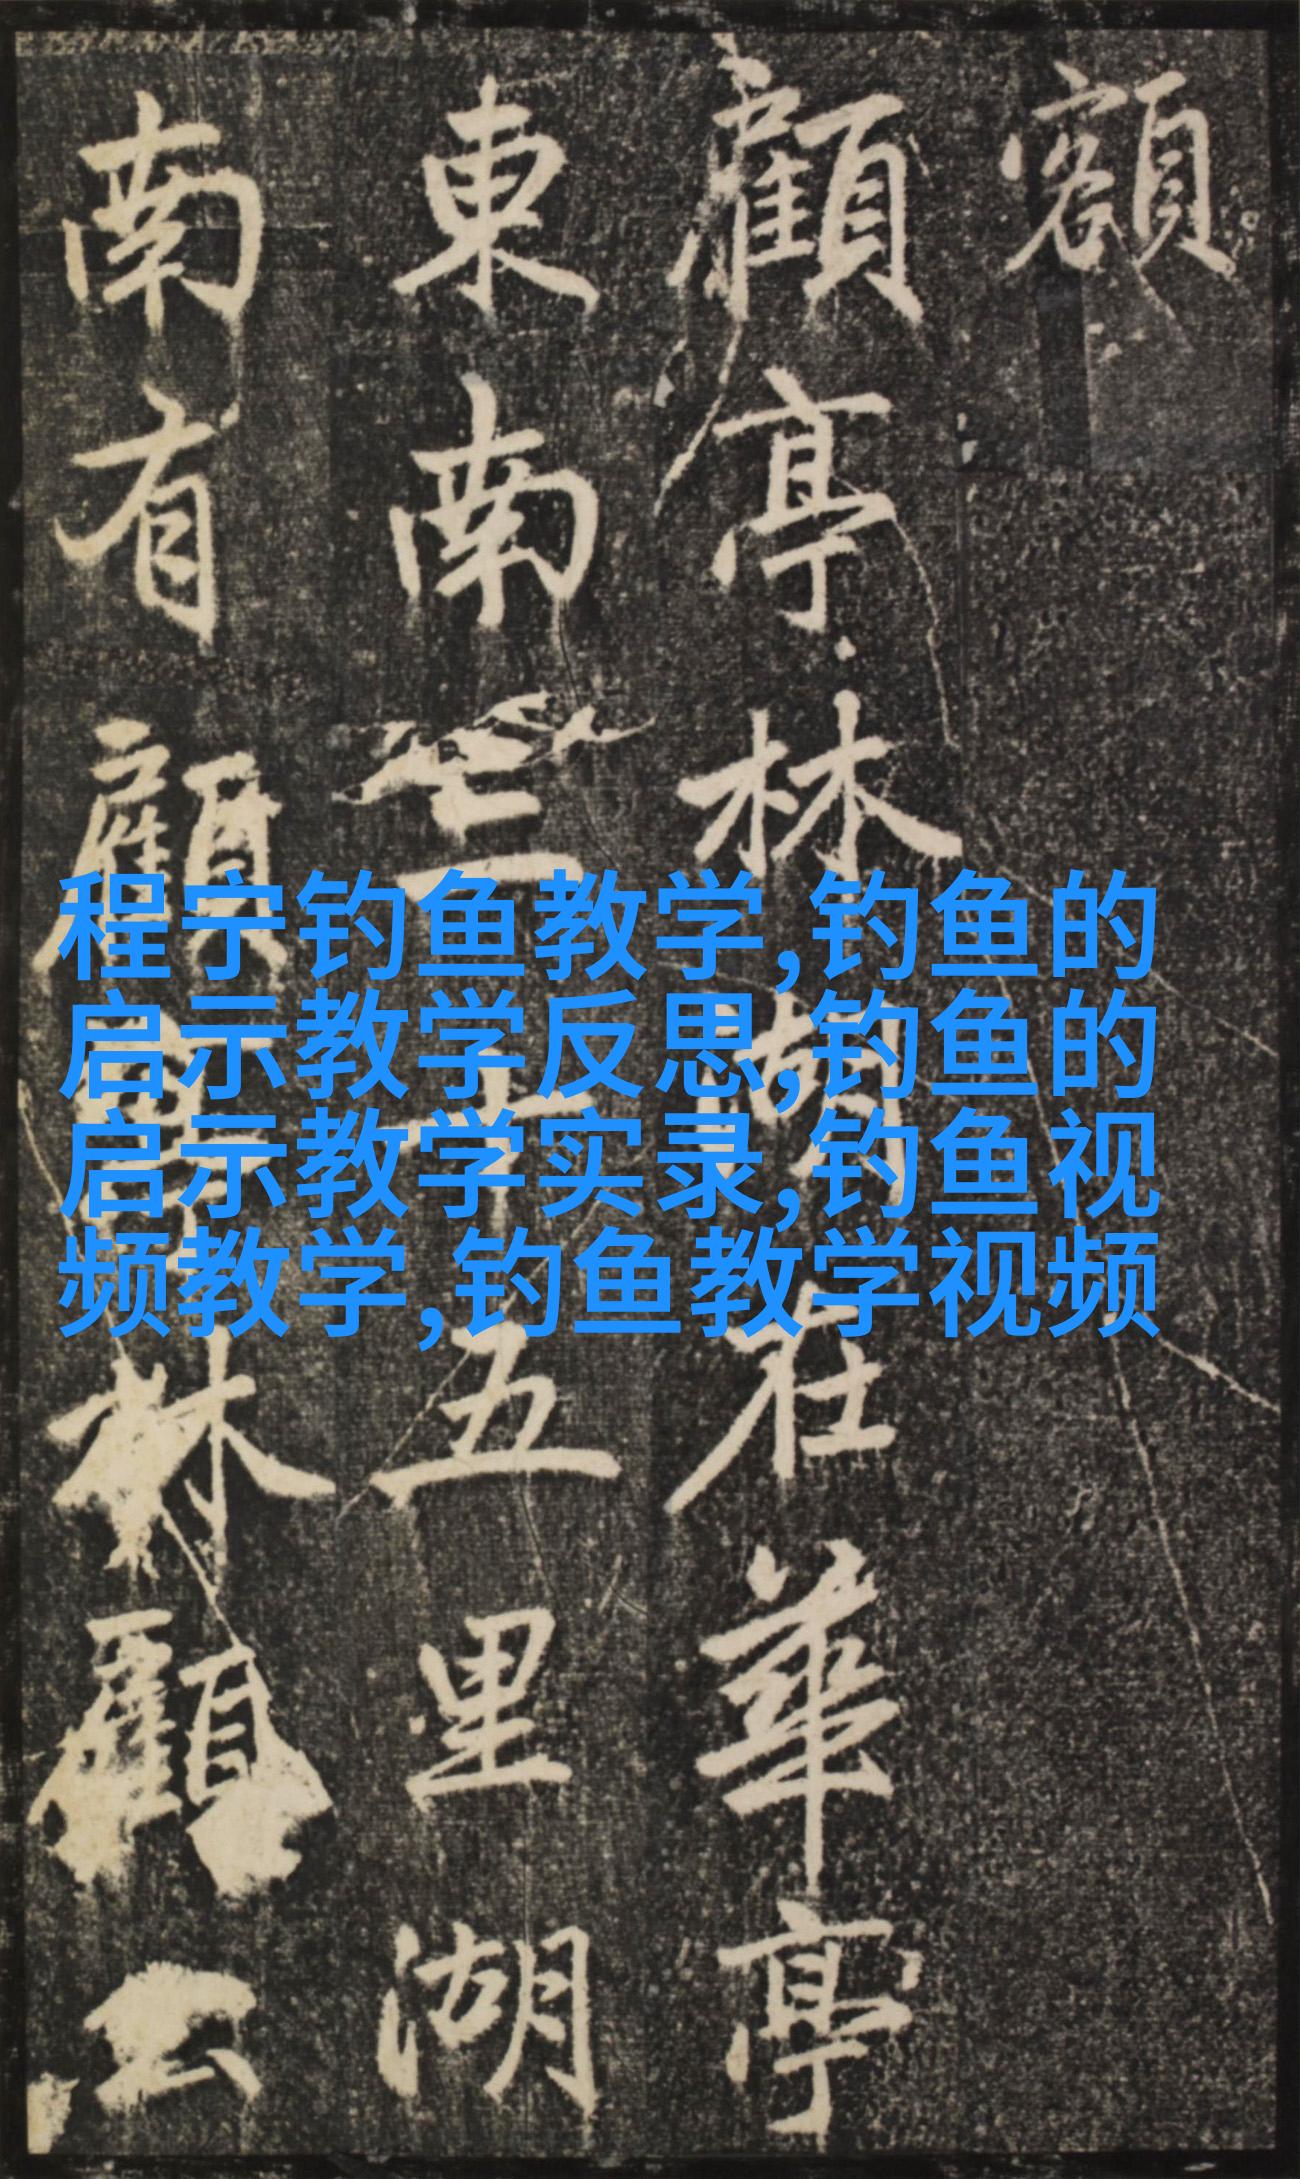 額
顧亭林湖在華亭
東南三十五里湖
南有顧林顧公
程宁钓鱼教学,钓鱼的
启示教学反思,钓鱼的
启示教学实录,钓鱼视
频教学,钓鱼教学视频